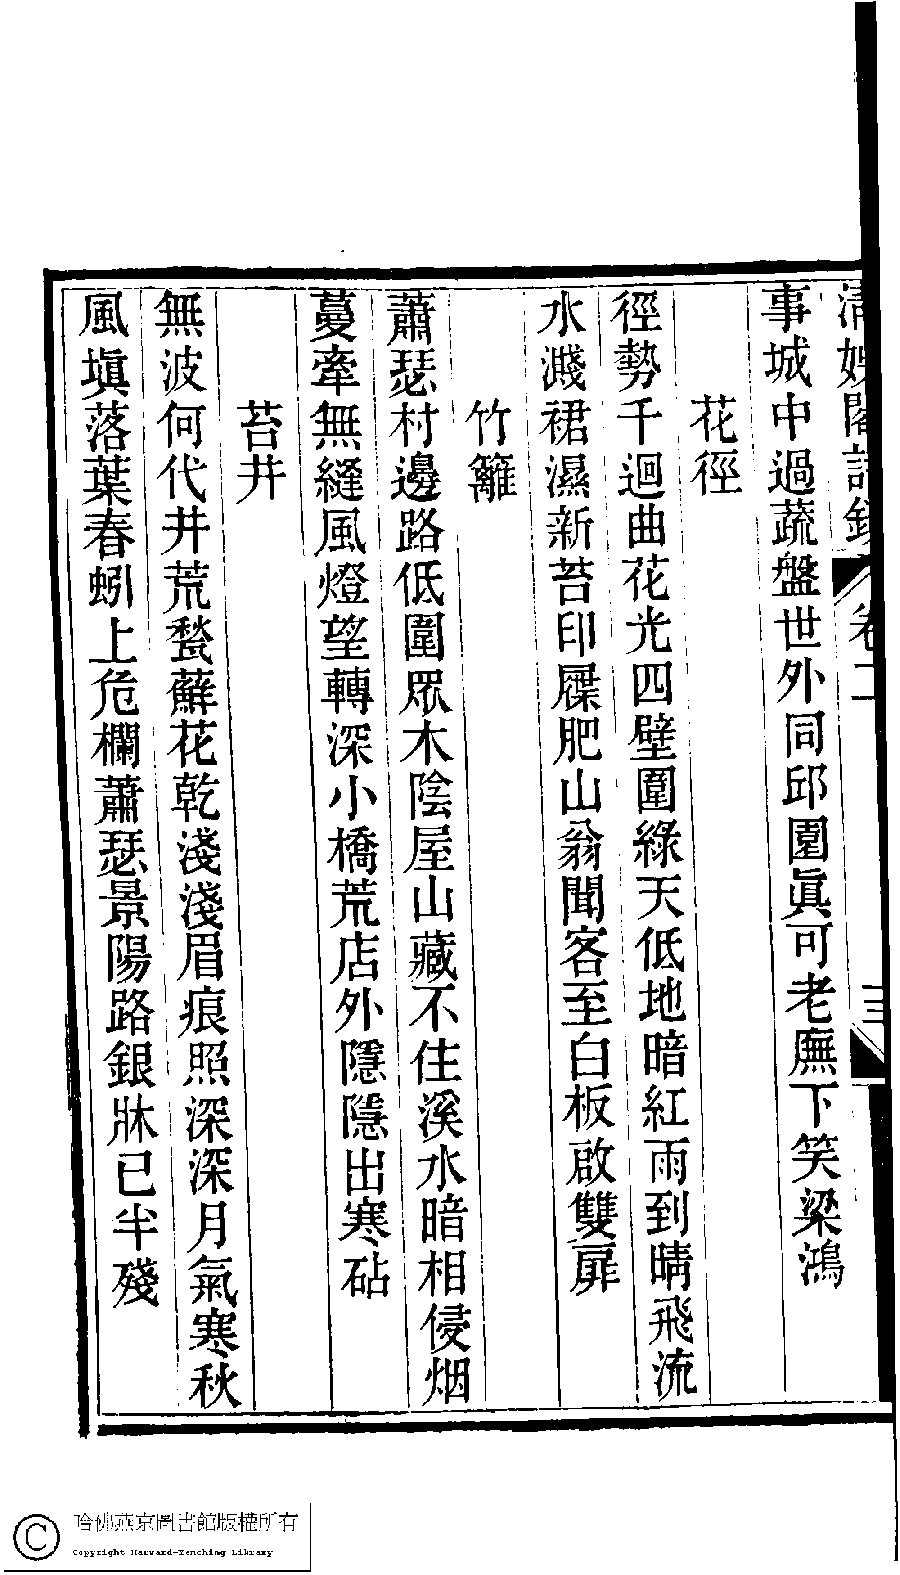 清娛閣詩鈔 卷二 三
事城中過蔬盤世外同邱園眞可老廡下笑梁鴻
花徑
徑勢千迴曲花光四壁圍綠天低地暗紅雨到晴飛流
水濺裙濕新苔印屧肥山翁聞客至白板啟雙扉
竹籬
蕭瑟村邊路低圍眾木陰屋山藏不住溪水暗相侵烟
蔓牽無縫風燈望轉深小橋荒店外隱隱出寒砧
苔井
無波何代井荒甃蘚花乾淺淺眉痕照深深月氣寒秋
風塡落葉春蚓上危欄蕭瑟景陽路銀牀已半殘
哈佛燕京圖書館版權所有
Copyright Harvard-Yenching Library